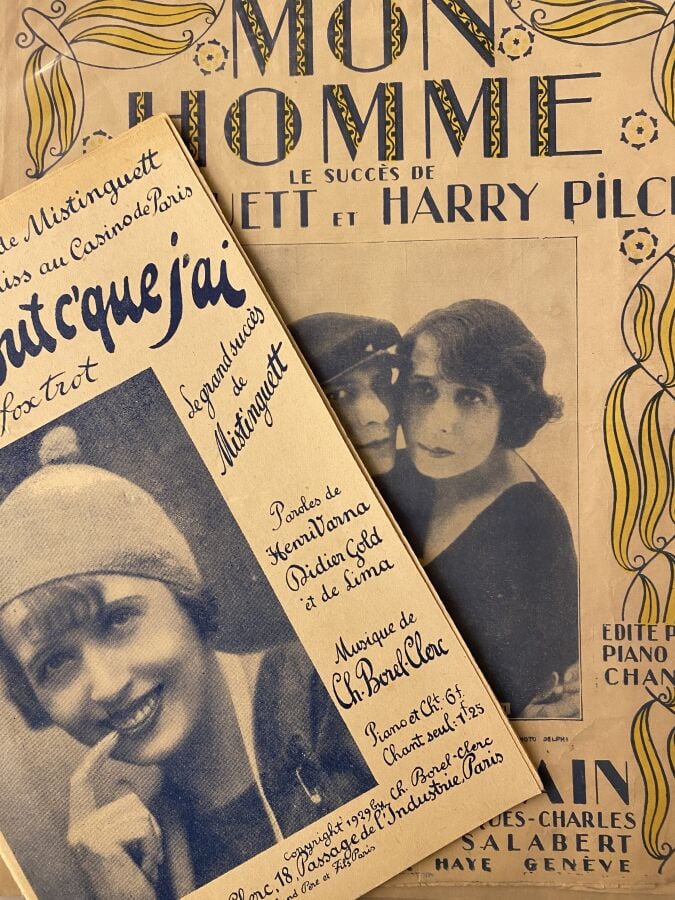 MON
HOMME
LE SUCCÈS DE
UETT ET HARRY PILC
de Mistinguett
iss au Casino de Paris
out c'que j'ai
fox trot
Le grand succès
de
Mistinguett
Paroles de
Henri Varna
Didier Gold
et de Lima
Musique de
Ch. Borel-Clerc
Piano et Cht: 6f.
Chant seul: 1f25
Copyright 1929 by Ch. Borel-Clerc
Clerc, 18, Passage de l'Industrie, Paris
and Père et Fils Paris
EDITE P
PIANO
CHAN
PHOTO DELPHI
AIN
UES-CHARLES
SALABERT
HAYE GENÈVE